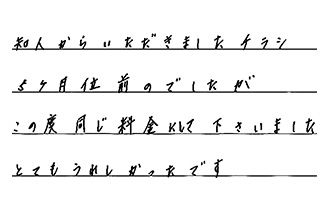 知人からいただきましたチラシ
5ケ月位前のでしたが
この度同じ料金にして下さいました
とてもうれしかったです